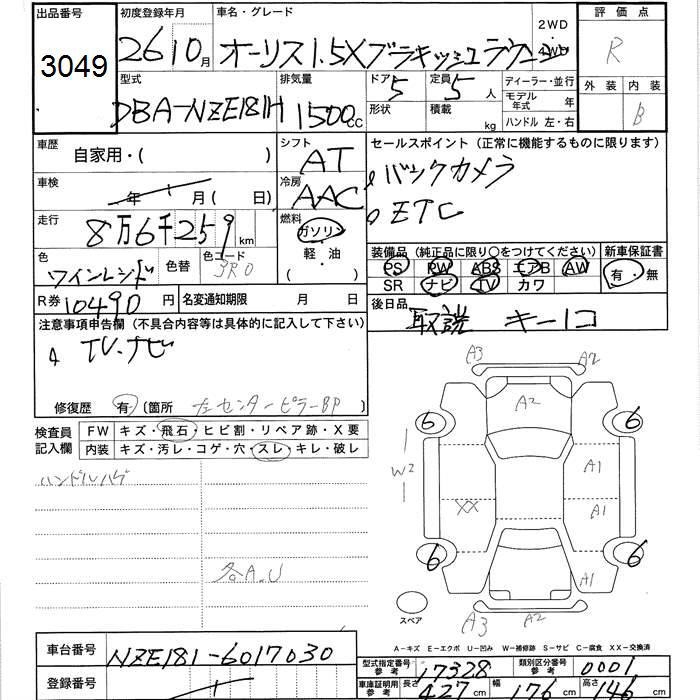 出品番号 初度登録年月 車名・グレード 2WD 評価点
3049 26 10月 オーリス1.5Xブラキッシュラウンジ 4WD R
型式 排気量 ドア 5 定員 5人 ディーラー・並行 外装 内装
DBA-NZE181H 1500cc 形状 積載 kg モデル年式 年 B
ハンドル 左・右
車歴 自家用・( ) シフト AT セールスポイント (正常に機能するものに限ります)
車検 年 月( 日) 冷房 AAC バックカメラ
走行 8万6千259km 燃料 ガソリン ETC
軽・油
( )
色 ワインレッド 色替 色コード 3R0 装備品 (純正品に限り〇をつけてください) 新車保証書
PS PW ABS エアB AW 有・無
SR ナビ TV カワ
R券 10490円 名変通知期限 月 日 後日品
注意事項申告欄 (不具合内容等は具体的に記入して下さい) 取説 キー1コ
TV.ナビ
修復歴 有 (箇所 左センターピラーBP
検査員記入欄 FW キズ・飛石・ヒビ割・リペア跡・X要
内装 キズ・汚レ・コゲ・穴・スレ・キレ・破レ
ハンドルハゲ
各A.U
A3 A2
A2
6 6
W2 A1
XX A1
6 6
A1
スペア A3 A2
A-キズ E-エクボ U-凹み W-補修跡 S-サビ C-腐食 XX-交換済
車台番号 NZE181-6017030 型式指定番号 参考 17328 類別区分番号 参考 0001
登録番号 車庫証明用 参考 長さ 427cm 幅 176cm 高さ 146cm